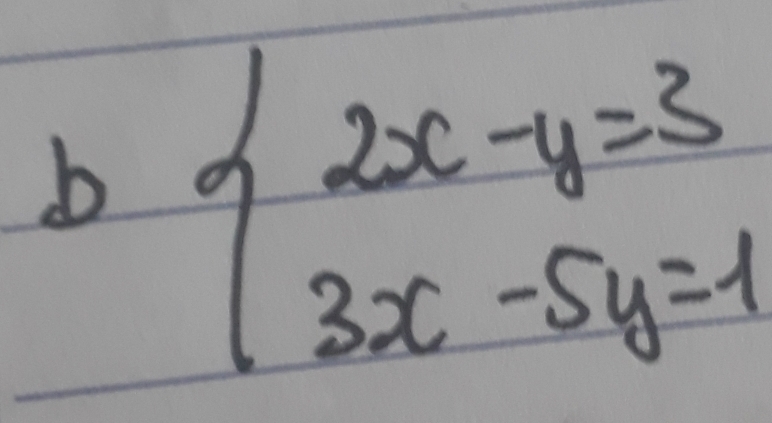 b { 2x - y = 3
3x - 5y = 1